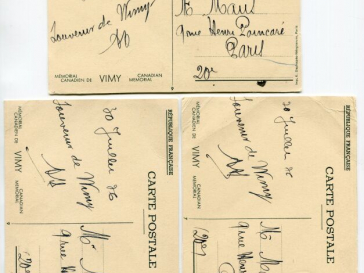 Souvenir de Vimy
M. Maus
9 rue Henri Poincaré
Paris
20e
MÉMORIAL CANADIEN DE VIMY CANADIAN MEMORIAL
30 Juillet 36
Souvenir de Vimy
MÉMORIAL CANADIEN DE VIMY CANADIAN MEMORIAL
RÉPUBLIQUE FRANÇAISE
CARTE POSTALE
M
9 rue Hen
(20e
30 Juillet 36
Souvenir de Vimy
MÉMORIAL CANADIEN DE VIMY CANADIAN MEMORIAL
RÉPUBLIQUE FRANÇAISE
CARTE POSTALE
M Ma
9 rue Hen
P
(20e